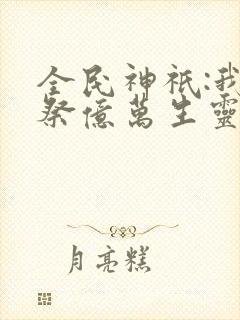 全民神祇:我
祭億萬生靈
月亮糕